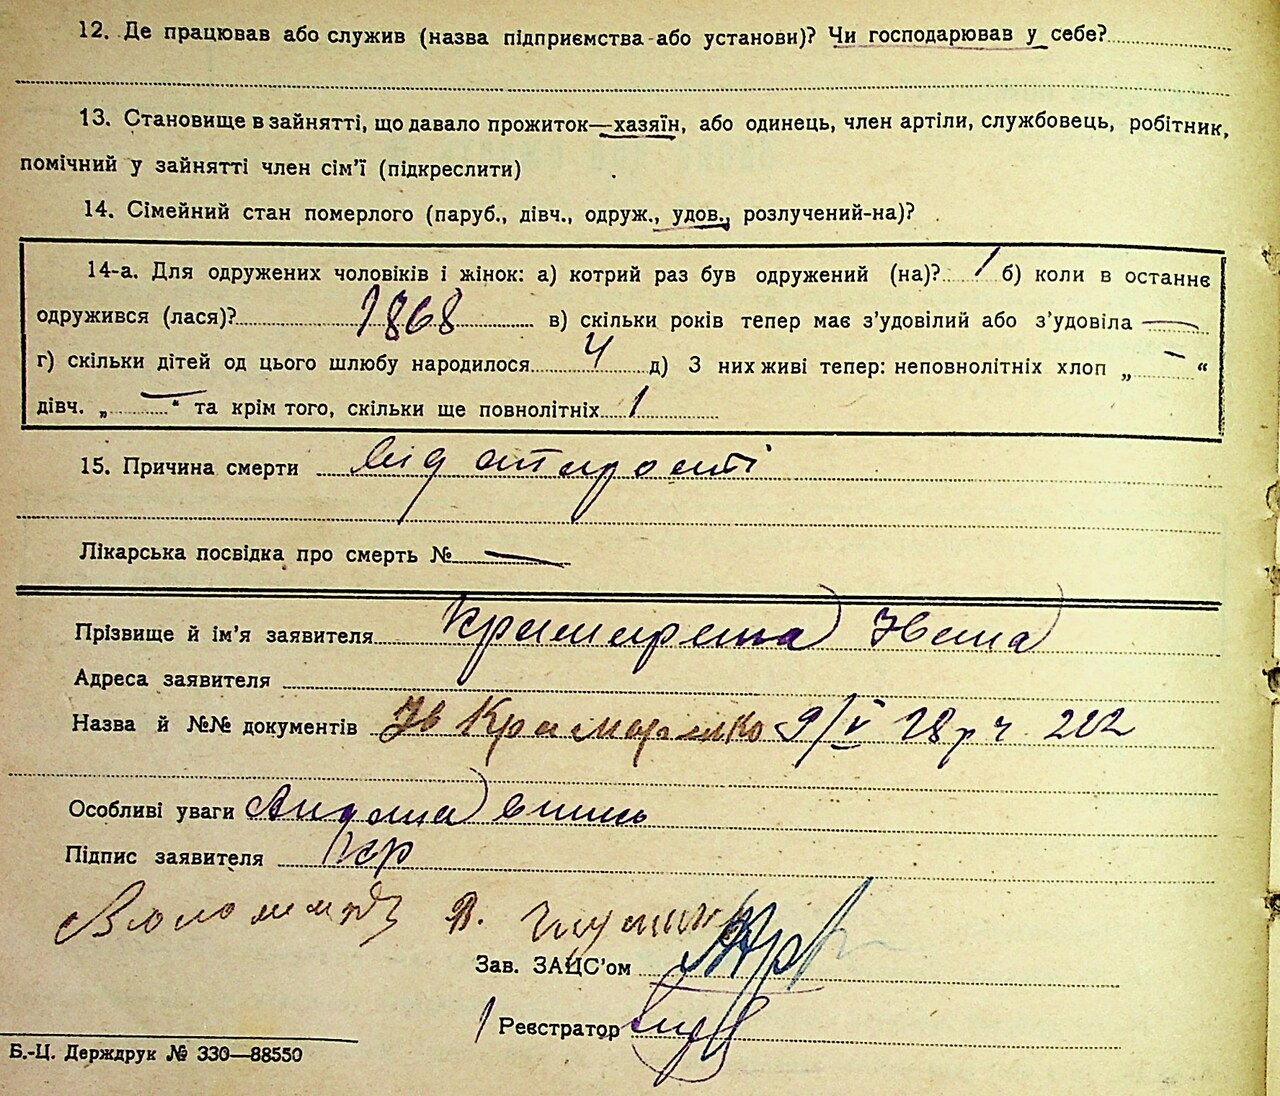 12. Де працював або служив (назва підприємства або установи)? Чи господарював у себе?
13. Становище в зайнятті, що давало прожиток—хазяїн, або одинець, член артіли, службовець, робітник,
помічний у зайнятті член сім'ї (підкреслити)
14. Сімейний стан померлого (паруб., дівч., одруж., удов., розлучений-на)?
14-а. Для одружених чоловіків і жінок: а) котрий раз був одружений (на)? 1 б) коли в останнє
одружився (лася)? 1868 в) скільки років тепер має з'удовілий або з'удовіла —
г) скільки дітей од цього шлюбу народилося 4 д) З них живі тепер: неповнолітніх хлоп „ — “
дівч. „ — “ та крім того, скільки ще повнолітніх 1
15. Причина смерти від старости
Лікарська посвідка про смерть № —
Прізвище й ім'я заявителя Крамаренка Івана
Адреса заявителя
Назва й №№ документів Ів Крамаренко 9/V 28 р ч. 202
Особливі уваги
Підпис заявителя Кр
Зав. ЗАЦС'ом
Реєстратор
Б.-Ц. Держдрук № 330—88550